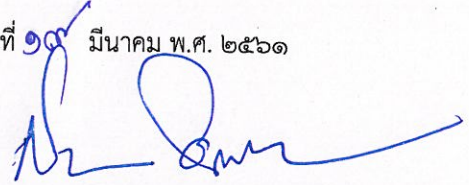 ที่ ๑๙ มีนาคม พ.ศ. ๒๕๖๑